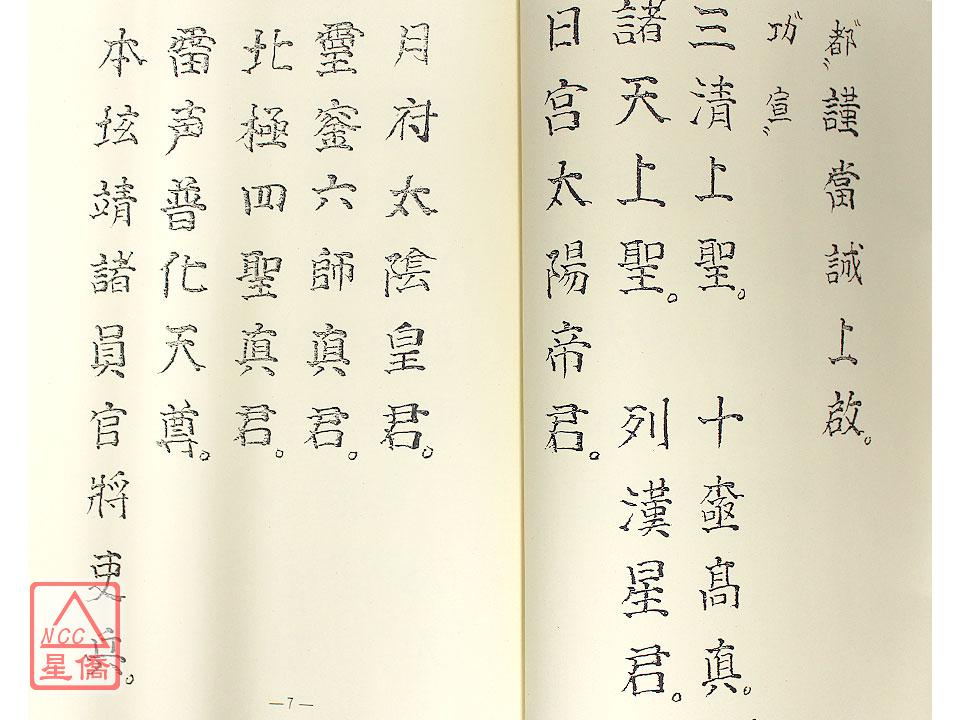 都〃謹當誠上啟。
功 宣〃
三清上聖。 十亟高真。
諸天上聖。 列漢星君。
日宮太陽帝君。
月府太陰皇君。
靈寶六師真君。
北極四聖真君。
雷声普化天尊。
本靖諸員官將吏兵。
—7—
NCC
星僑